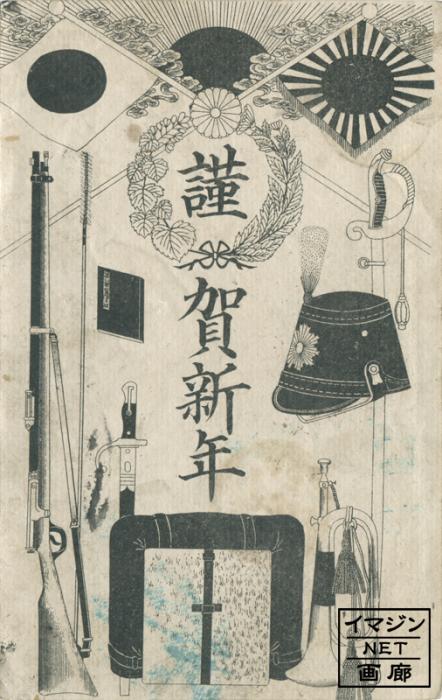 謹賀新年
イマジン
NET
画廊